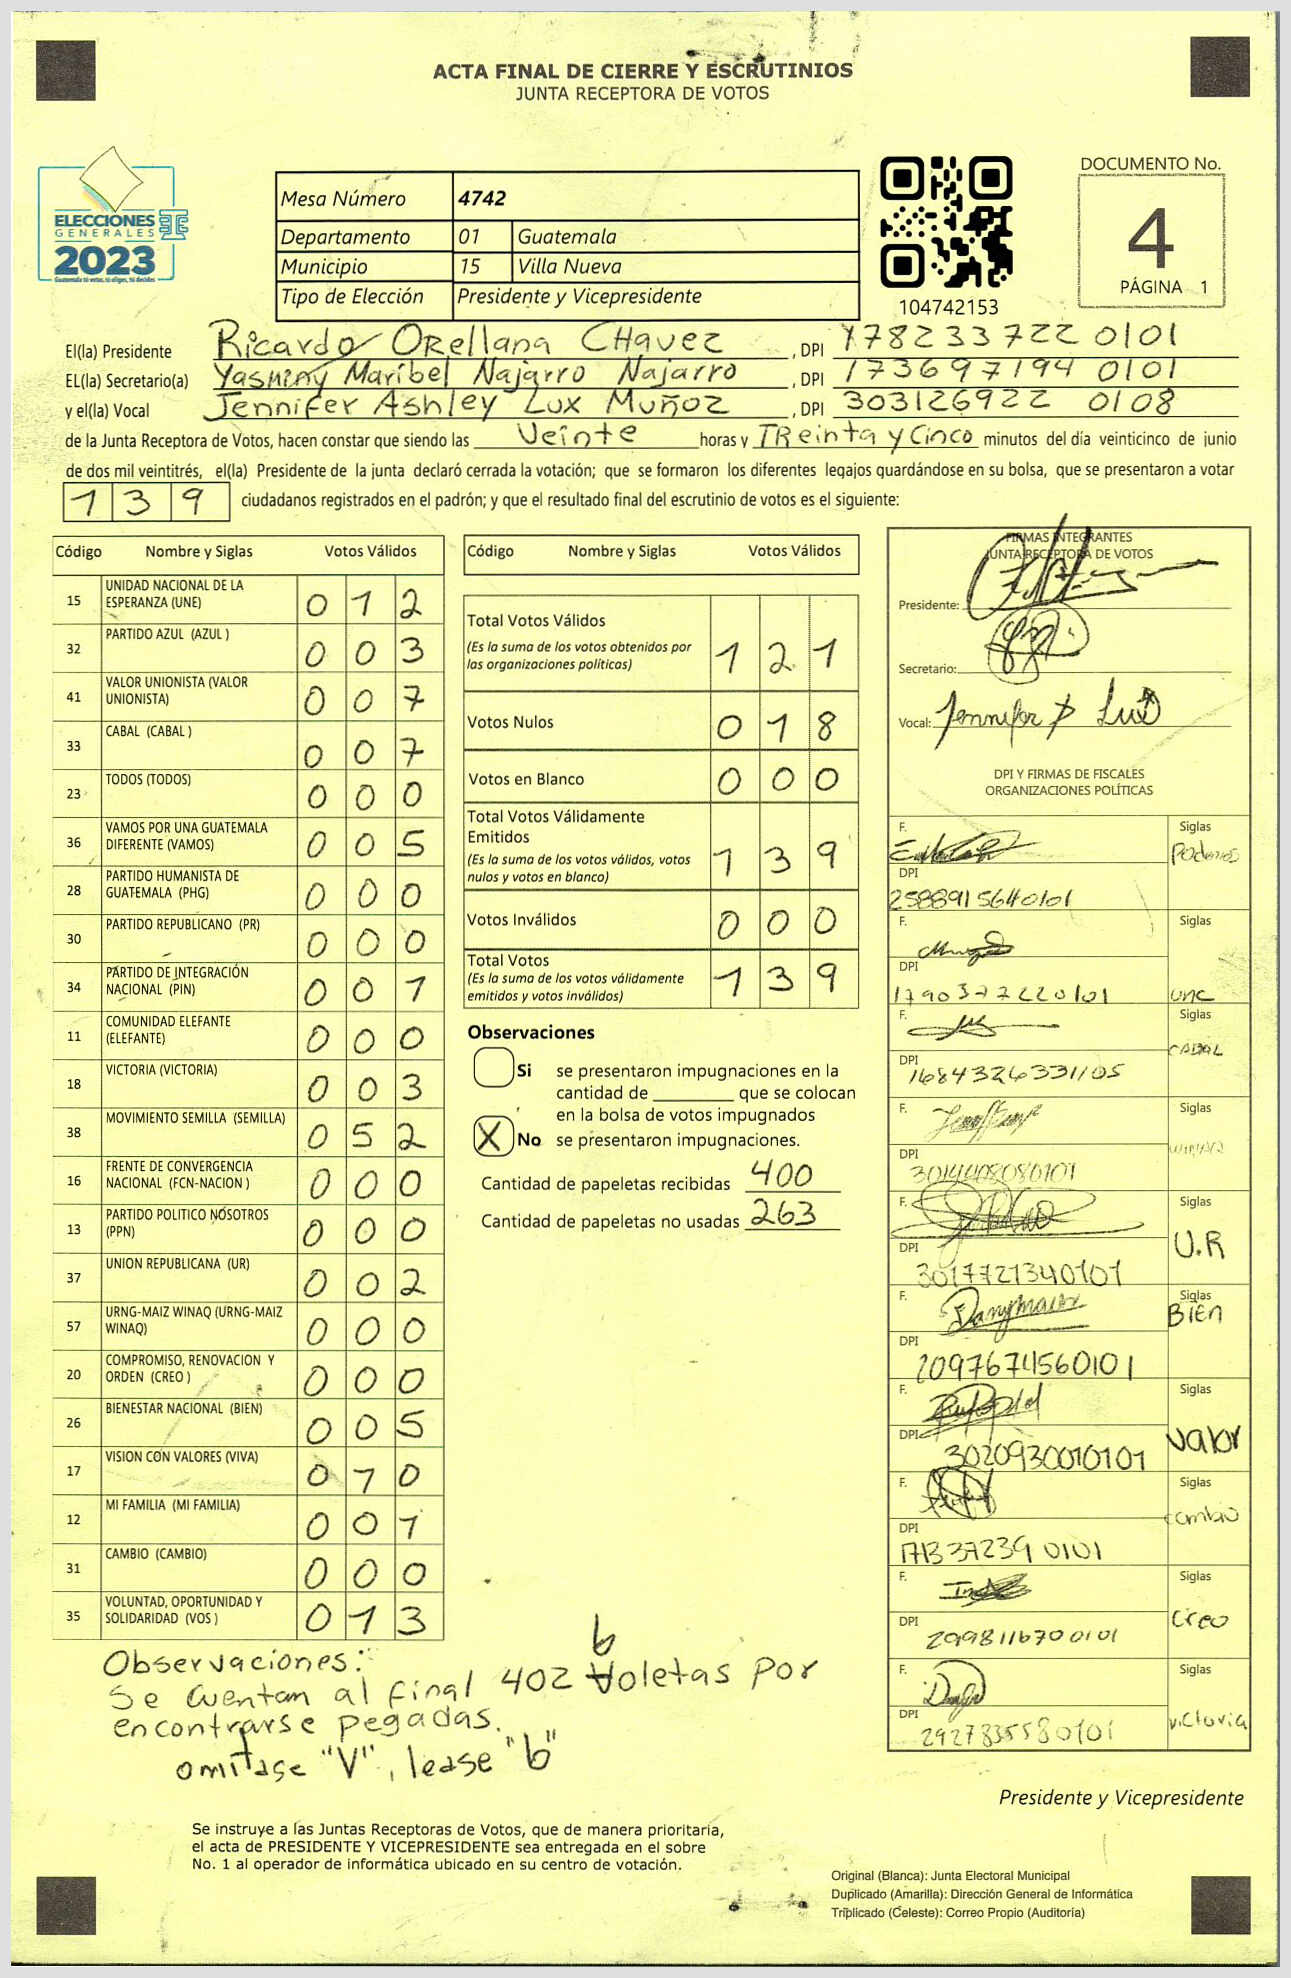 ACTA FINAL DE CIERRE Y ESCRUTINIOS
JUNTA RECEPTORA DE VOTOS
ELECCIONES
GENERALES
2023
Guatemala tú votas, tú eliges, tú decides
Mesa Número 4742
Departamento 01 Guatemala
Municipio 15 Villa Nueva
Tipo de Elección Presidente y Vicepresidente
104742153
DOCUMENTO No.
4
PÁGINA 1
El(la) Presidente Ricardo Orellana CHavez , DPI 178233722 0101
EL(la) Secretario(a) Yasminy Maribel Najarro Najarro , DPI 173697194 0101
y el(la) Vocal Jennifer Ashley Lux Muñoz , DPI 303126922 0108
de la Junta Receptora de Votos, hacen constar que siendo las Veinte horas y TReinta y Cinco minutos del día veinticinco de junio
de dos mil veintitrés, el(la) Presidente de la junta declaró cerrada la votación; que se formaron los diferentes legajos guardándose en su bolsa, que se presentaron a votar
139 ciudadanos registrados en el padrón; y que el resultado final del escrutinio de votos es el siguiente:
Código Nombre y Siglas Votos Válidos
15 UNIDAD NACIONAL DE LA ESPERANZA (UNE) 012
32 PARTIDO AZUL (AZUL ) 003
41 VALOR UNIONISTA (VALOR UNIONISTA) 007
33 CABAL (CABAL ) 007
23 TODOS (TODOS) 000
36 VAMOS POR UNA GUATEMALA DIFERENTE (VAMOS) 005
28 PARTIDO HUMANISTA DE GUATEMALA (PHG) 000
30 PARTIDO REPUBLICANO (PR) 000
34 PARTIDO DE INTEGRACIÓN NACIONAL (PIN) 001
11 COMUNIDAD ELEFANTE (ELEFANTE) 000
18 VICTORIA (VICTORIA) 003
38 MOVIMIENTO SEMILLA (SEMILLA) 052
16 FRENTE DE CONVERGENCIA NACIONAL (FCN-NACION ) 000
13 PARTIDO POLITICO NOSOTROS (PPN) 000
37 UNION REPUBLICANA (UR) 002
57 URNG-MAIZ WINAQ (URNG-MAIZ WINAQ) 000
20 COMPROMISO, RENOVACION Y ORDEN (CREO ) 000
26 BIENESTAR NACIONAL (BIEN) 005
17 VISION CON VALORES (VIVA) 010
12 MI FAMILIA (MI FAMILIA) 001
31 CAMBIO (CAMBIO) 000
35 VOLUNTAD, OPORTUNIDAD Y SOLIDARIDAD (VOS ) 013
Código Nombre y Siglas Votos Válidos
Total Votos Válidos
(Es la suma de los votos obtenidos por
las organizaciones politicas) 121
Votos Nulos 018
Votos en Blanco 000
Total Votos Válidamente
Emitidos
(Es la suma de los votos válidos, votos
nulos y votos en blanco) 139
Votos Inválidos 000
Total Votos
(Es la suma de los votos válidamente
emitidos y votos inválidos) 139
Observaciones
Si se presentaron impugnaciones en la
cantidad de ________ que se colocan
en la bolsa de votos impugnados
X No se presentaron impugnaciones.
Cantidad de papeletas recibidas 400
Cantidad de papeletas no usadas 263
FIRMAS INTEGRANTES
JUNTA RECEPTORA DE VOTOS
Presidente:
Secretario:
Vocal: Jennifer
DPI Y FIRMAS DE FISCALES
ORGANIZACIONES POLÍTICAS
F. Siglas
DPI
2588915640101
F. Siglas
DPI
1790377220101 unc
F. Siglas
CABAL
DPI
1684326331105
F. Siglas
DPI
3014408080101
F. Siglas
U.R
DPI
3017721340101
F. Siglas
Bien
DPI
2097674560101
F. Siglas
Valor
DPI
3020930010101
F. Siglas
cambio
DPI
F. Siglas
Creo
DPI
2998116700101
F. Siglas
DPI
victoria
Observaciones: b
Se cuentan al final 402 Voletas por
encontrarse pegadas.
omitase "V", lease "b"
Presidente y Vicepresidente
Se instruye a las Juntas Receptoras de Votos, que de manera prioritaria,
el acta de PRESIDENTE Y VICEPRESIDENTE sea entregada en el sobre
No. 1 al operador de informática ubicado en su centro de votación.
Original (Blanca): Junta Electoral Municipal
Duplicado (Amarilla): Dirección General de Informática
Triplicado (Celeste): Correo Propio (Auditoría)